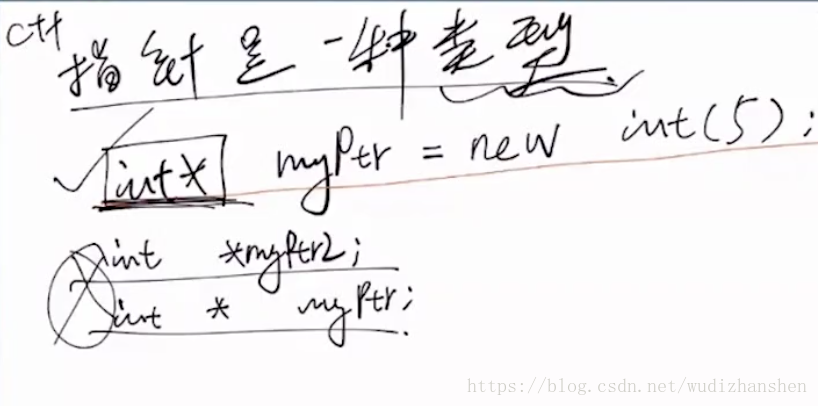 C++
指针是一种类型
int* myPtr = new int(5);
int *myPtr2;
int * myPtr;
https://blog.csdn.net/wudizhanshen